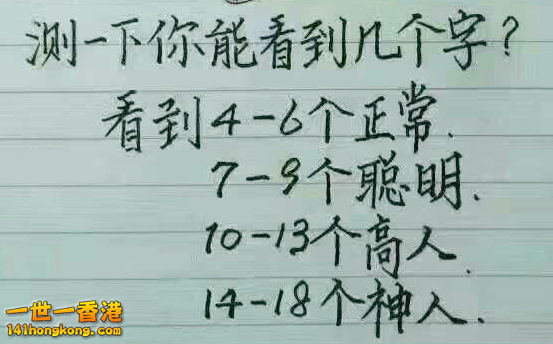 测一下你能看到几个字?
看到4-6个正常.
7-9个聪明.
10-13个高人.
14-18个神人.
一世一香港
141hongkong.com